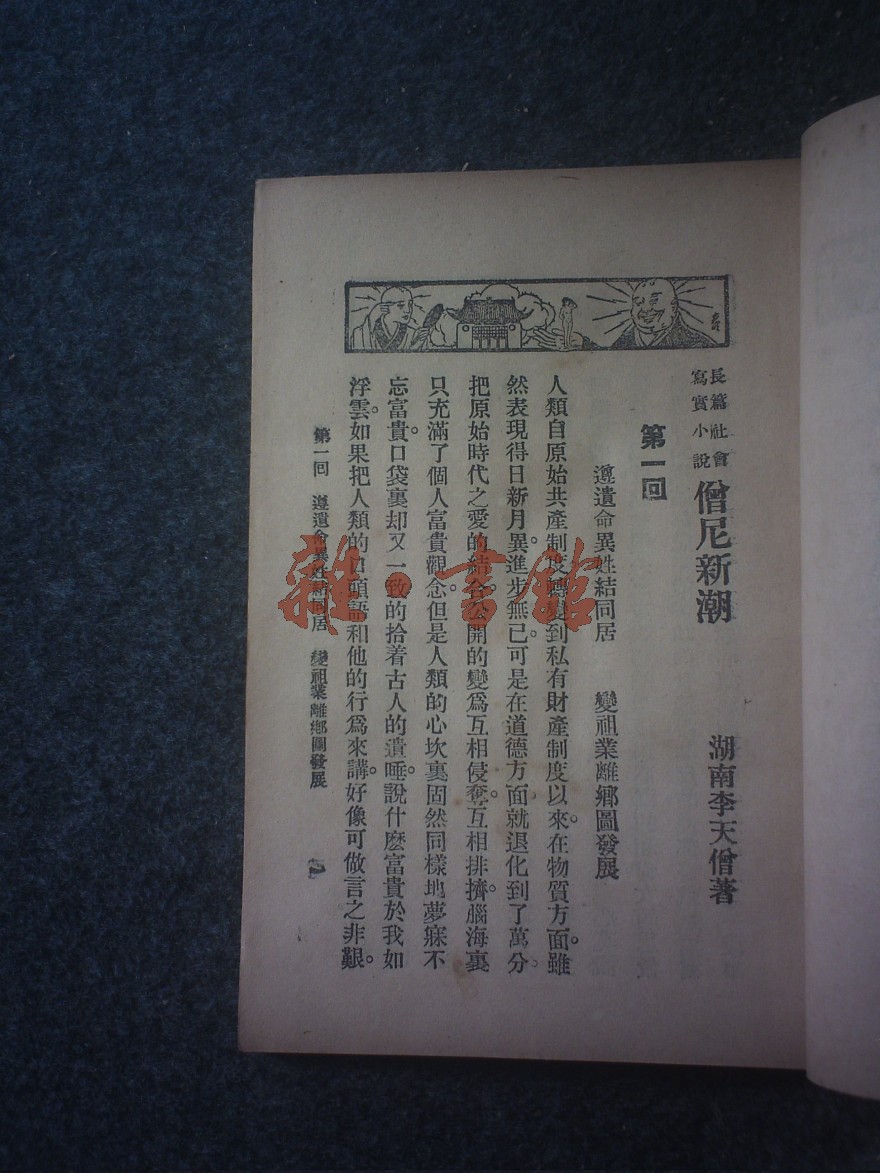 長篇社會
寫實小說
僧尼新潮
湖南李天僧著
第一回
遵遺命異姓結同居 變祖業離鄉圖發展
人類自原始共產制度轉變到私有財產制度以來。在物質方面。雖
然表現得日新月異。進步無已。可是在道德方面。就退化到了萬分。
把原始時代之愛的結合。公開的變爲互相侵奪。互相排擠。腦海裏
只充滿了個人富貴觀念。但是人類的心坎裏。固然同樣地夢寐不
忘富貴。口袋裏却又一致的拾着古人的遺唾。說什麽富貴於我如
浮雲。如果把人類的口頭語和他的行爲來講。好像可做言之非艱。
第一回 遵遺命異姓結同居 變祖業離鄉圖發展
雜·書館